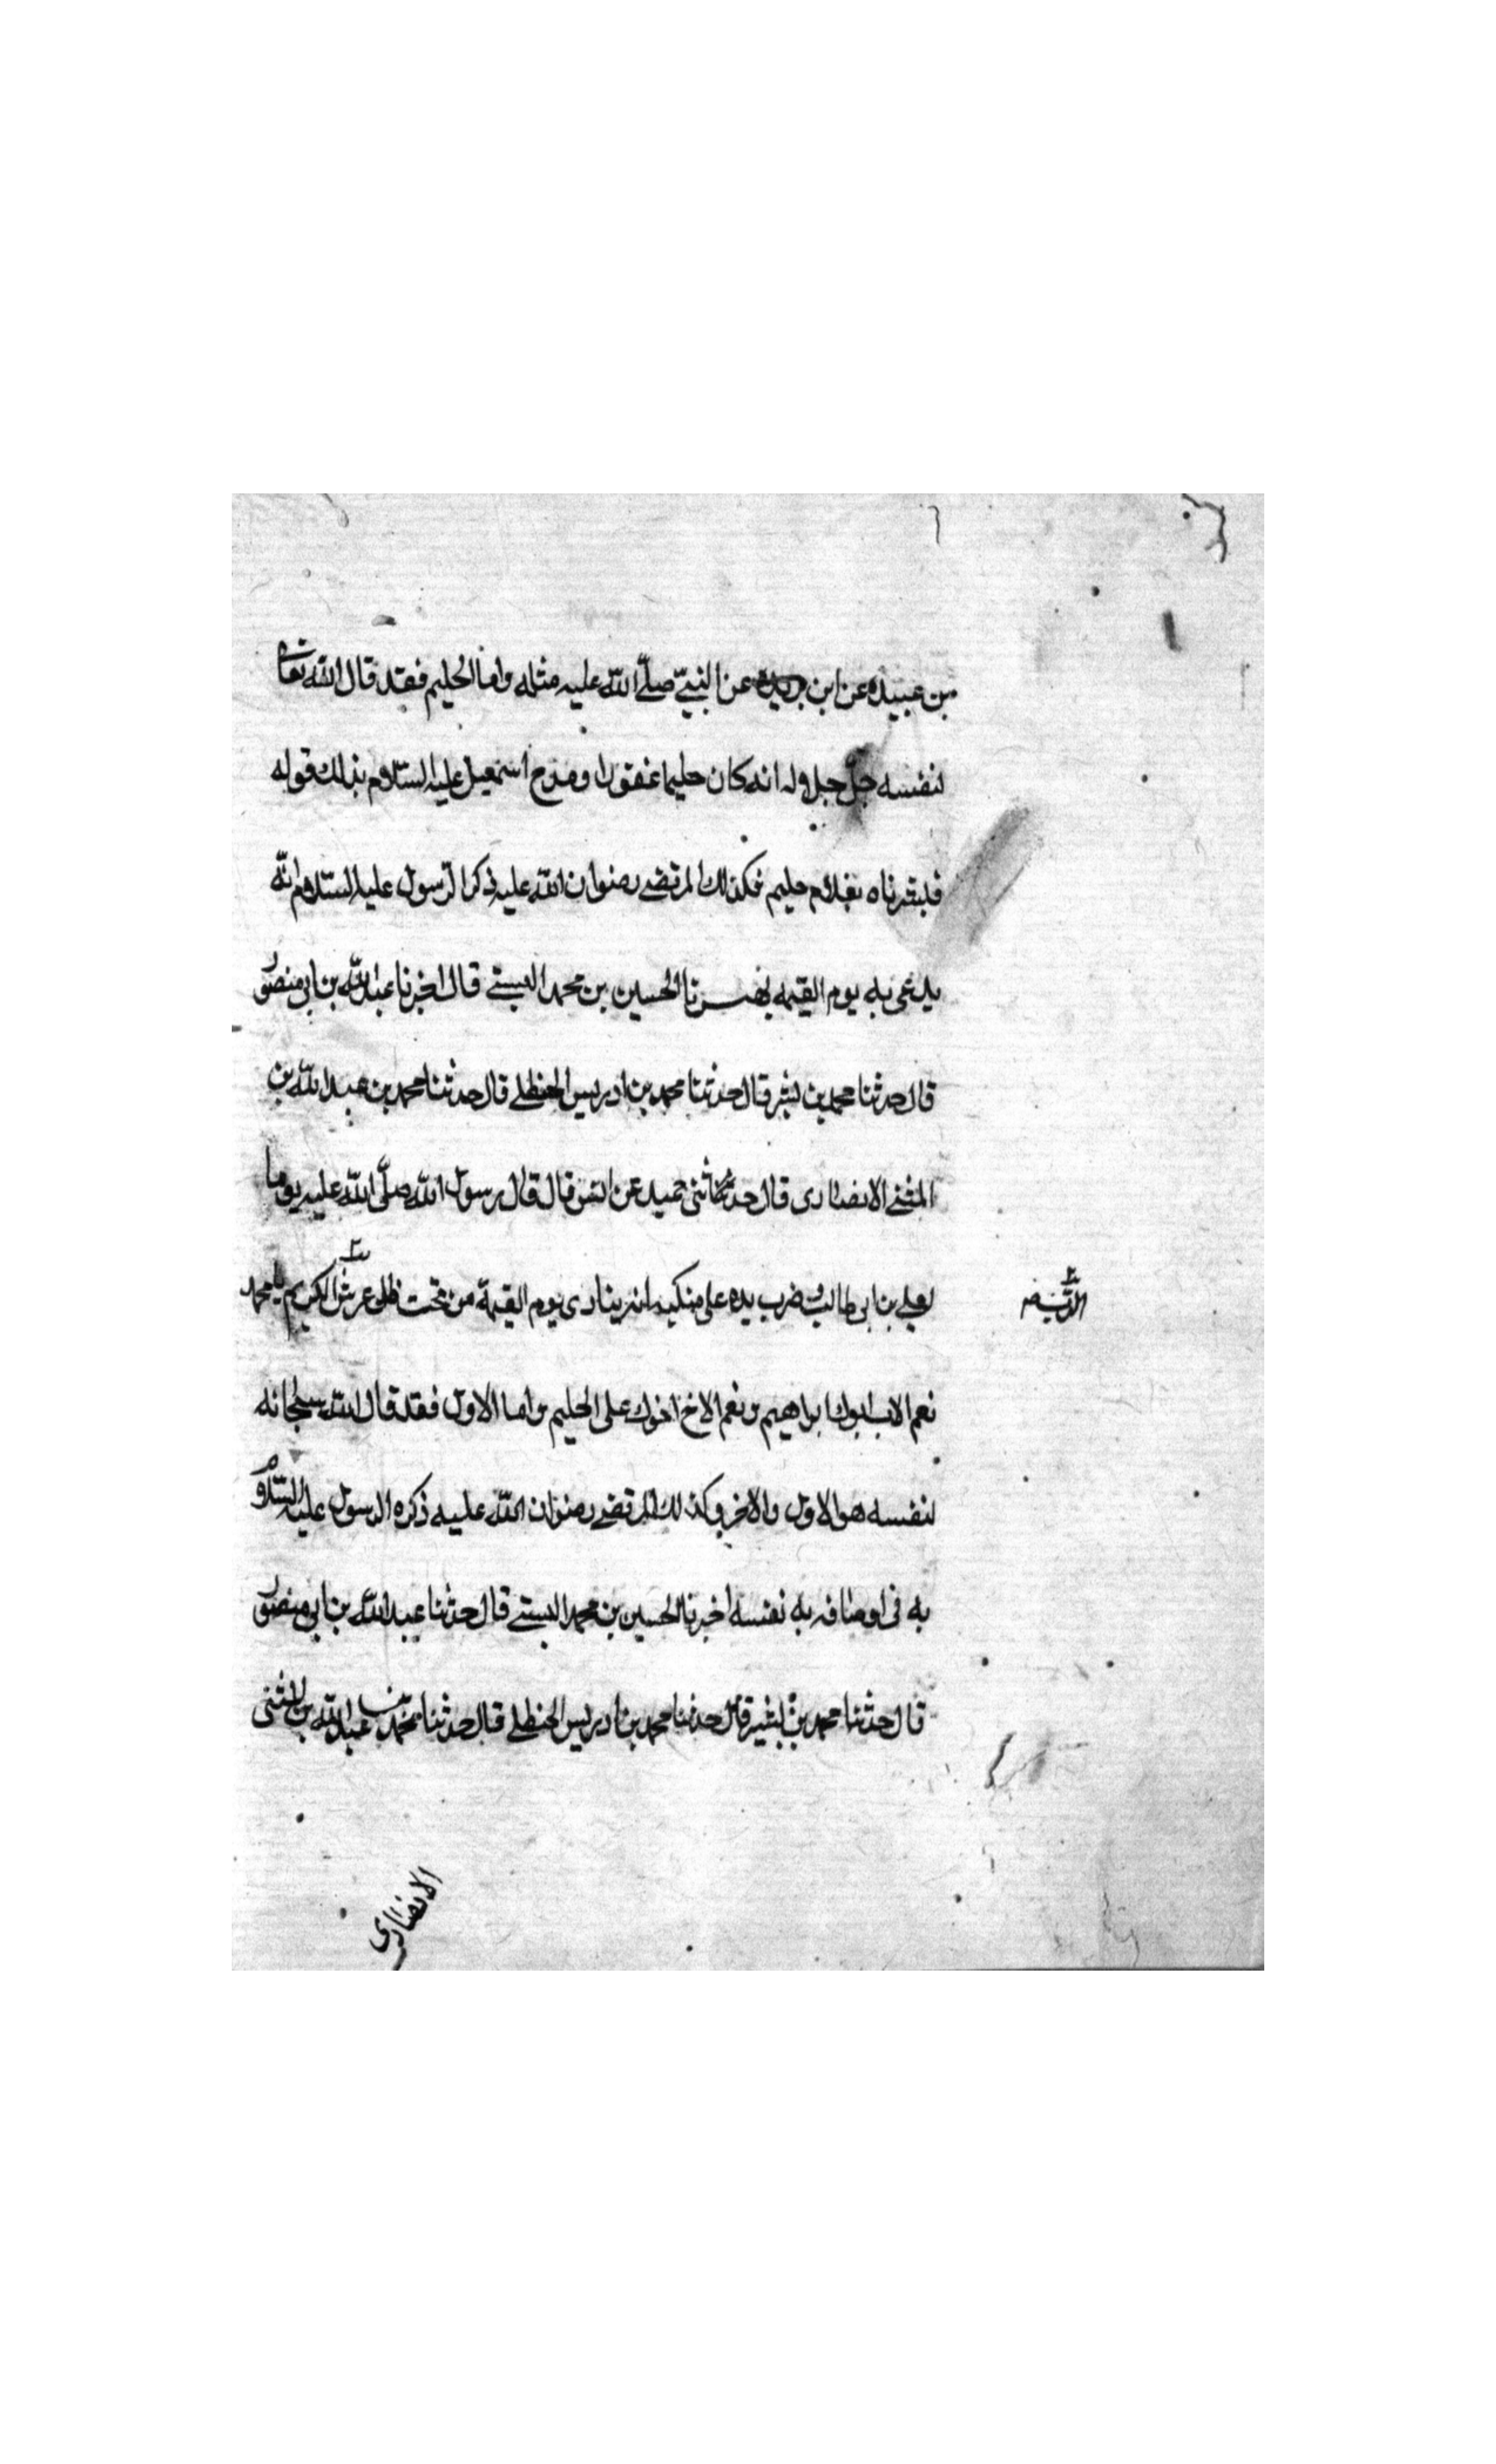 بن عبيده عن ابن بريده عن النبيّ صلّى الله عليه مثله واما الحليم فقد قال الله تعالى
لنفسه جلّ جلاله انه كان حليما غفورا ومدح اسمعيل عليه السلام بذلك قوله
فبشرناه بغلام حليم فكذلك المرتضى رضوان الله عليه ذكر الرسول عليه السلام انّه
يدعى به يوم القيمه الحسين بن محمد البستي قال اخبرنا عبدالله بن ابي منصور
قال حدثنا محمد بن بشر قال حدثنا محمد بن ادريس الحنظلي قال حدثنا محمد بن عبد الله بن
المثنى الانصارى قال حدثنى حميد عن انس قال قال رسول الله صلّى الله عليه يوما
لعلي بن ابى طالب وضرب يده على منكبيه انه ينادى يوم القيمة من تحت ظل عرش الكريم يا محمد
نعم الاب ابوك ابراهيم ونعم الاخ اخوك على الحليم واما الاول فقد قال الله سبحانه
لنفسه هو الاول والاخر وكذلك المرتضى رضوان الله عليه ذكره الرسول عليه السلام
به فى اوصافه به نفسه اخبرنا الحسين بن محمد البستي قال حدثنا عبد الله بن ابي منصور
قال حدثنا محمد بن بشير قال حدثنا محمد بن ادريس الحنظلي قال حدثنا محمد بن عبد الله بن المثنى
الانصارى